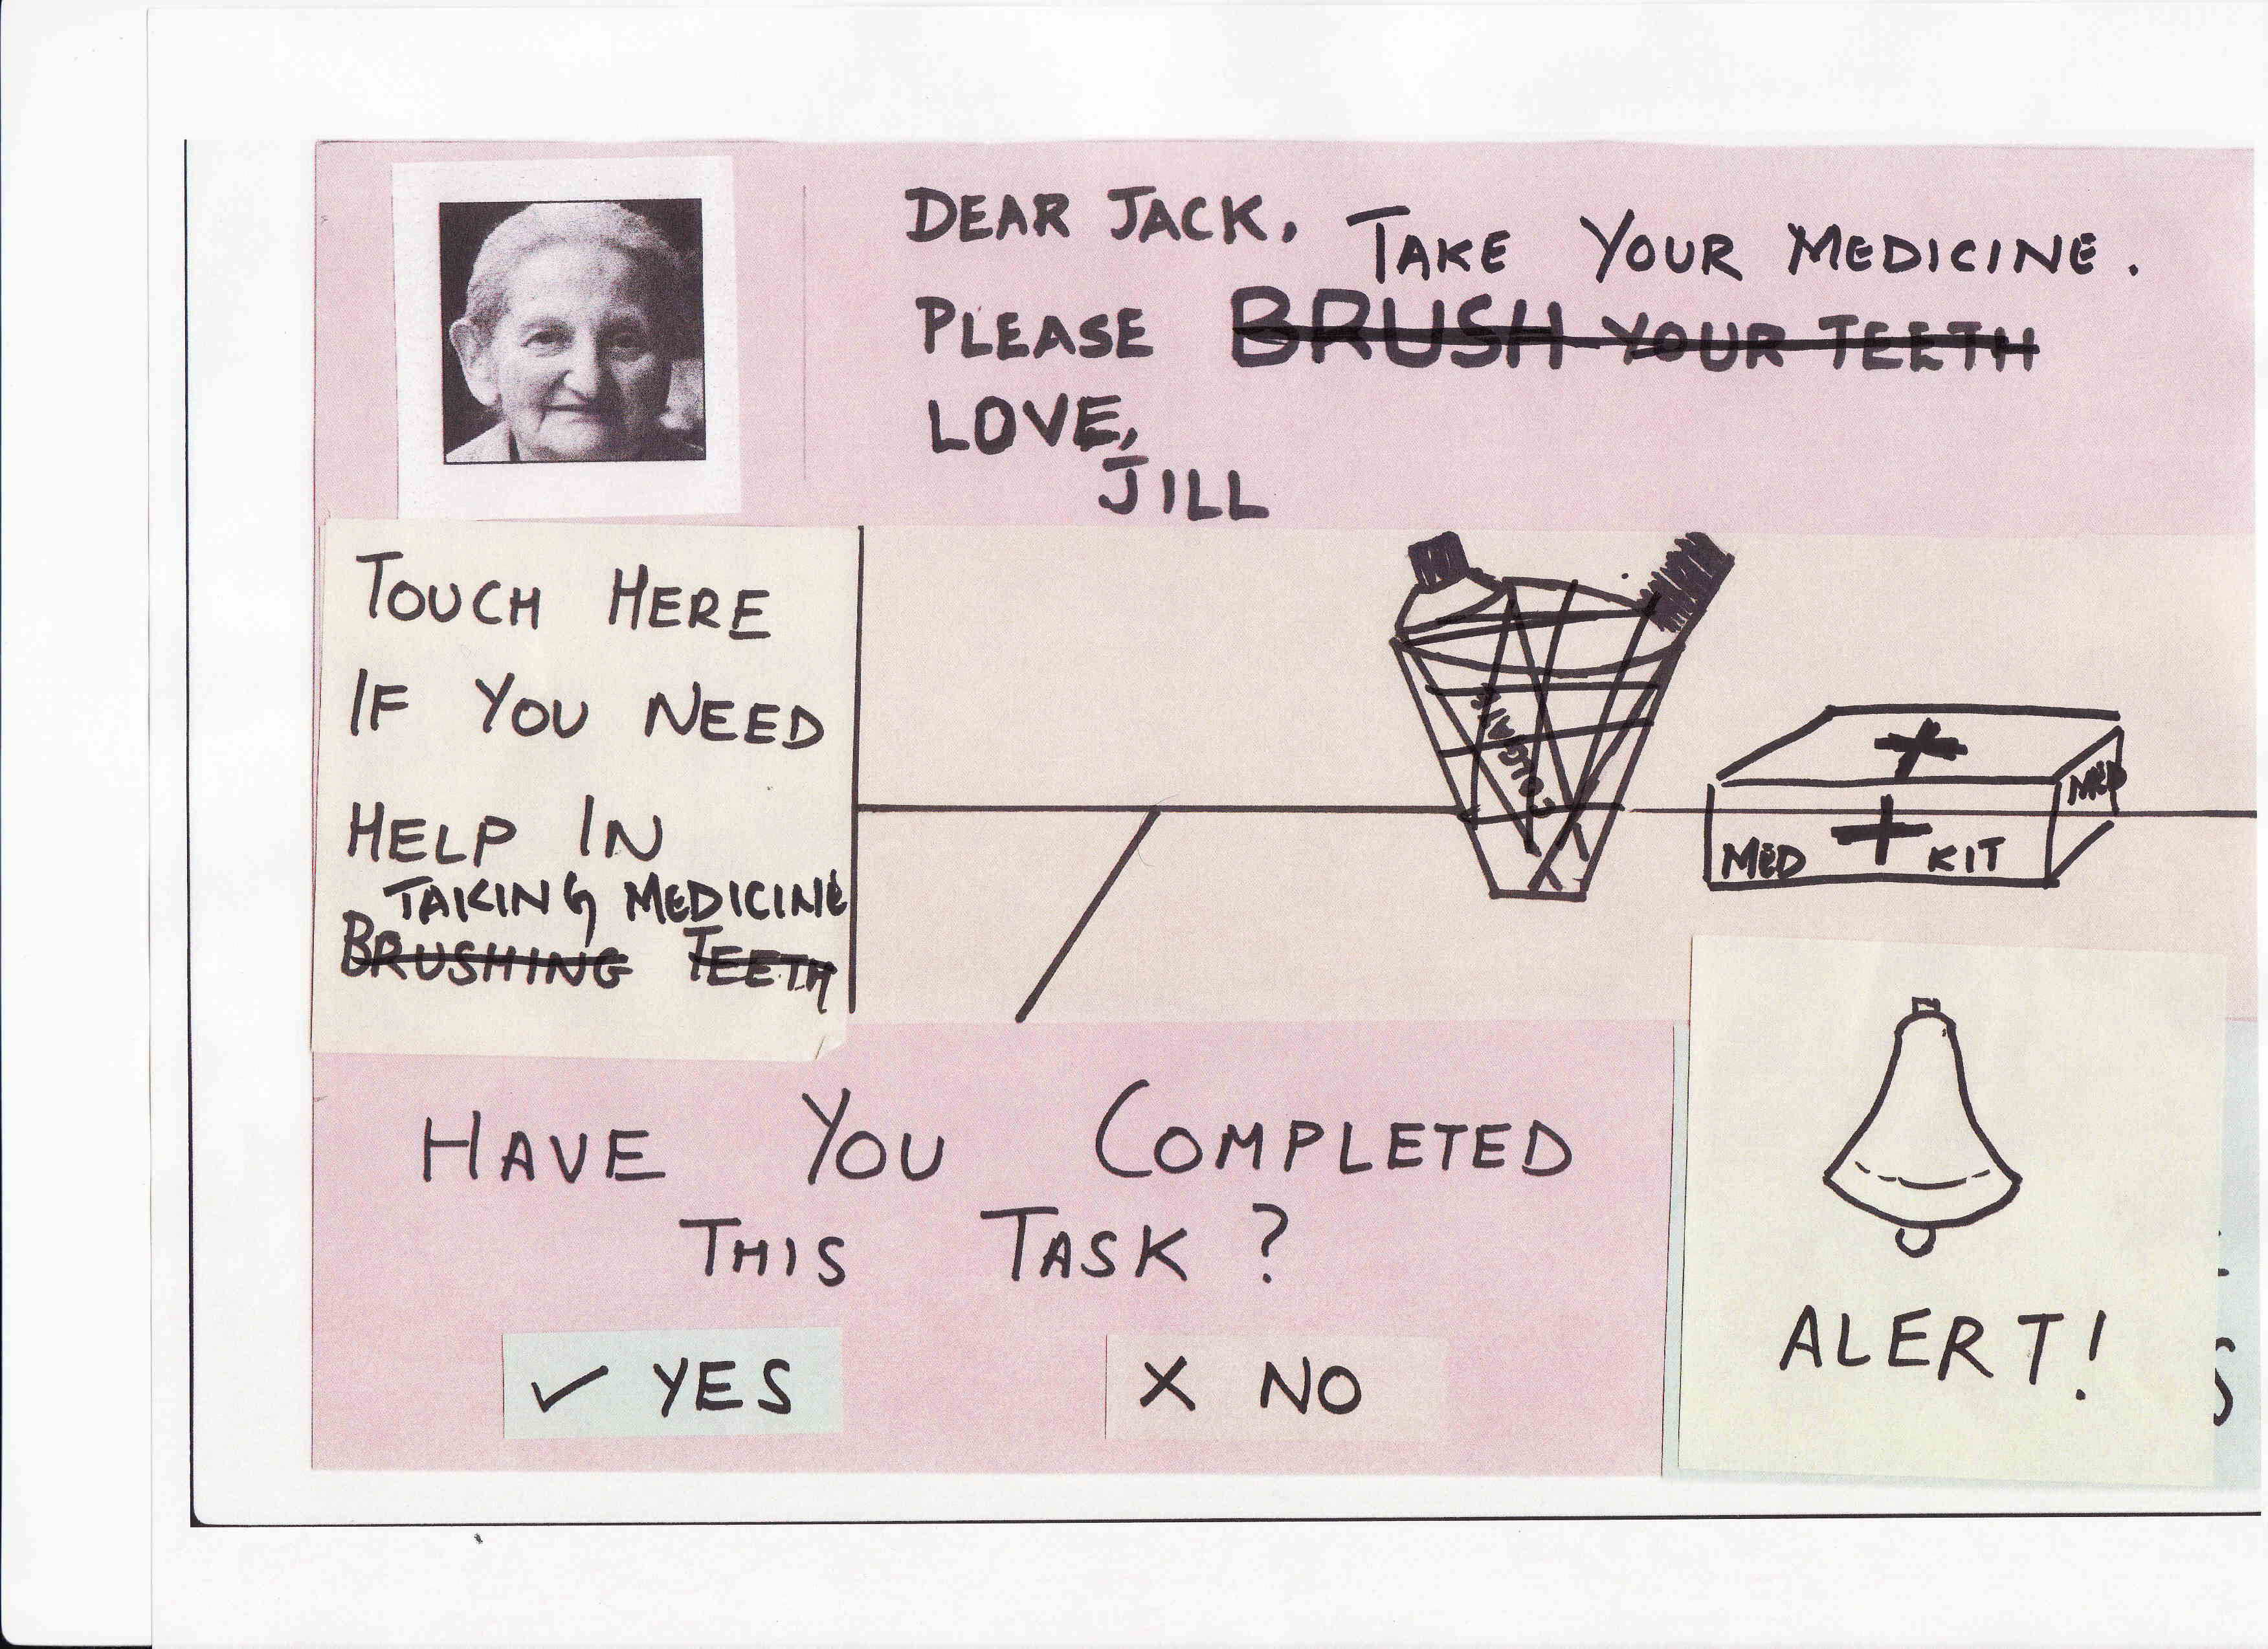 DEAR JACK,
TAKE YOUR MEDICINE.
PLEASE BRUSH YOUR TEETH
LOVE,
JILL
TOUCH HERE
IF YOU NEED
HELP IN
TAKING MEDICINE
BRUSHING TEETH
COLGATE
MED KIT
MED
HAVE YOU COMPLETED
THIS TASK?
✓ YES
X NO
ALERT!